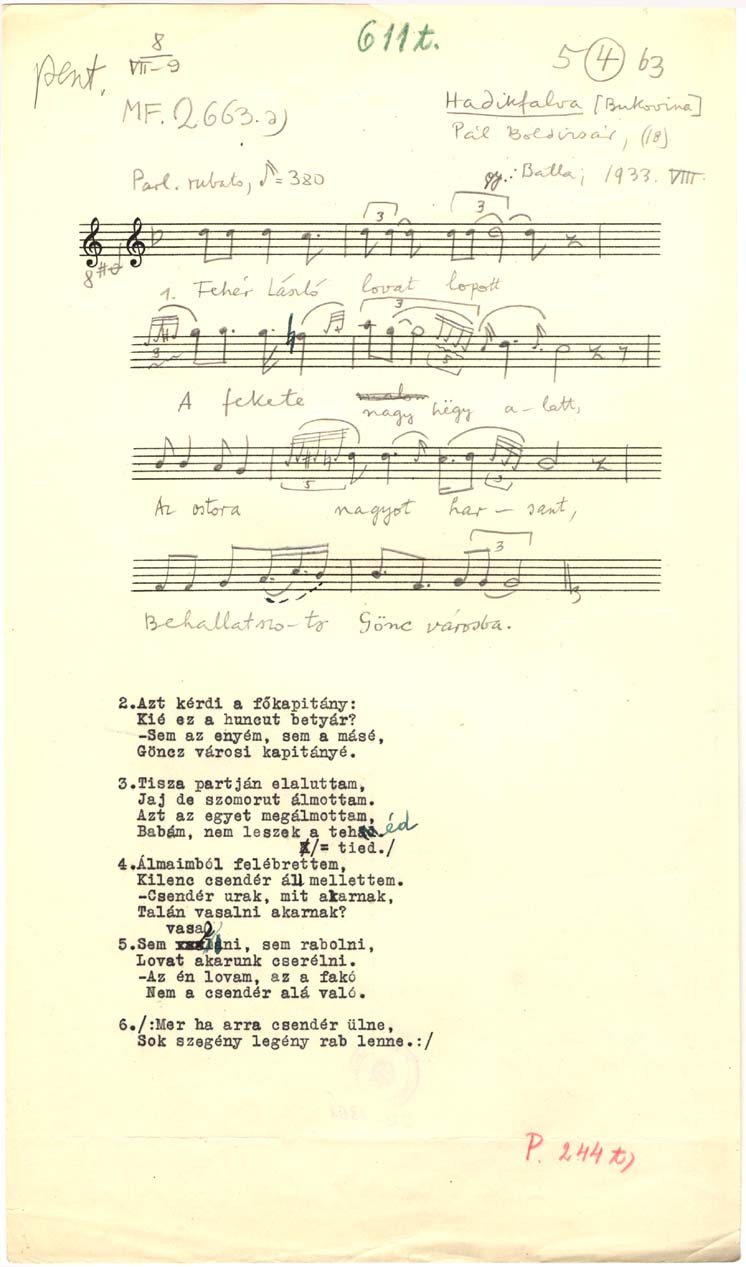 611t.
pent.
8
VII-9
5 (4) b3
MF. 2663.a)
Hadikfalva [Bukovina]
Pál Boldizsár, (18)
gy.: Balla, 1933. VIII.
Parl. rubato, ♪=380
3 3
8
1. Fehér László lovat lopott
3
3 5
A fekete nagy hëgy a-latt,
5 3
Az ostora nagyot har-sant,
3
Behallatszo-tt Gönc városba.
2.Azt kérdi a főkapitány:
Kié ez a huncut betyár?
-Sem az enyém, sem a másé,
Göncz városi kapitányé.
3.Tisza partján elaluttam,
Jaj de szomorut álmottam.
Azt az egyet megálmottam,
Babám, nem leszek a tehéd
/= tied./
4.Álmaimból felébrettem,
Kilenc csendér áll mellettem.
-Csendér urak, mit akarnak,
Talán vasalni akarnak?
vasal
5.Sem ni, sem rabolni,
Lovat akarunk cserélni.
-Az én lovam, az a fakó
Nem a csendér alá való.
6./:Mer ha arra csendér ülne,
Sok szegény legény rab lenne.:/
P. 244 t)